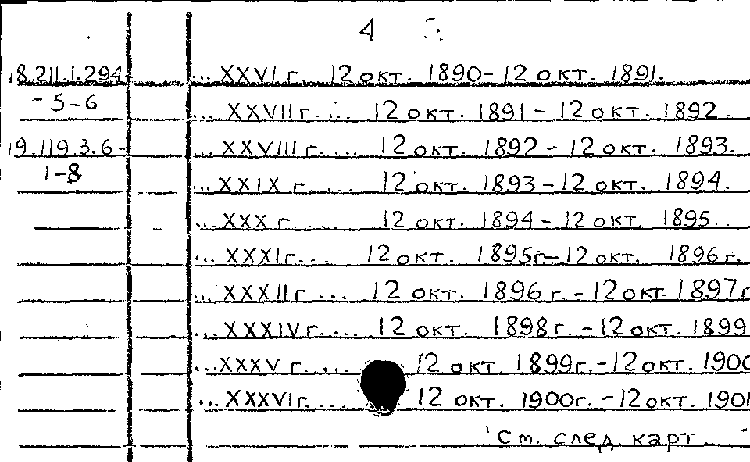 4
18.211.1.294 ... XXVI г. 12 окт. 1890-12 окт. 1891.
-5-6 ... XXVII г. ... 12 окт. 1891-12 окт. 1892
19.119.3.6- ... XXVIII г. ... 12 окт. 1892-12 окт. 1893.
1-8 ... XXIX г. 12 окт. 1893-12 окт. 1894.
... XXX г. 12 окт. 1894-12 окт. 1895
... XXXI г... 12 окт. 1895г-12 окт. 1896 г.
... XXXII г. ... 12 окт. 1896 г.-12 окт 1897г
... XXXIV г. ... 12 окт. 1898г.-12 окт. 1899
... XXXV г. ... 12 окт 1899г.-12 окт. 1900
... XXXVI г. ... 12 окт. 1900г.-12 окт. 1901
См. след. карт.